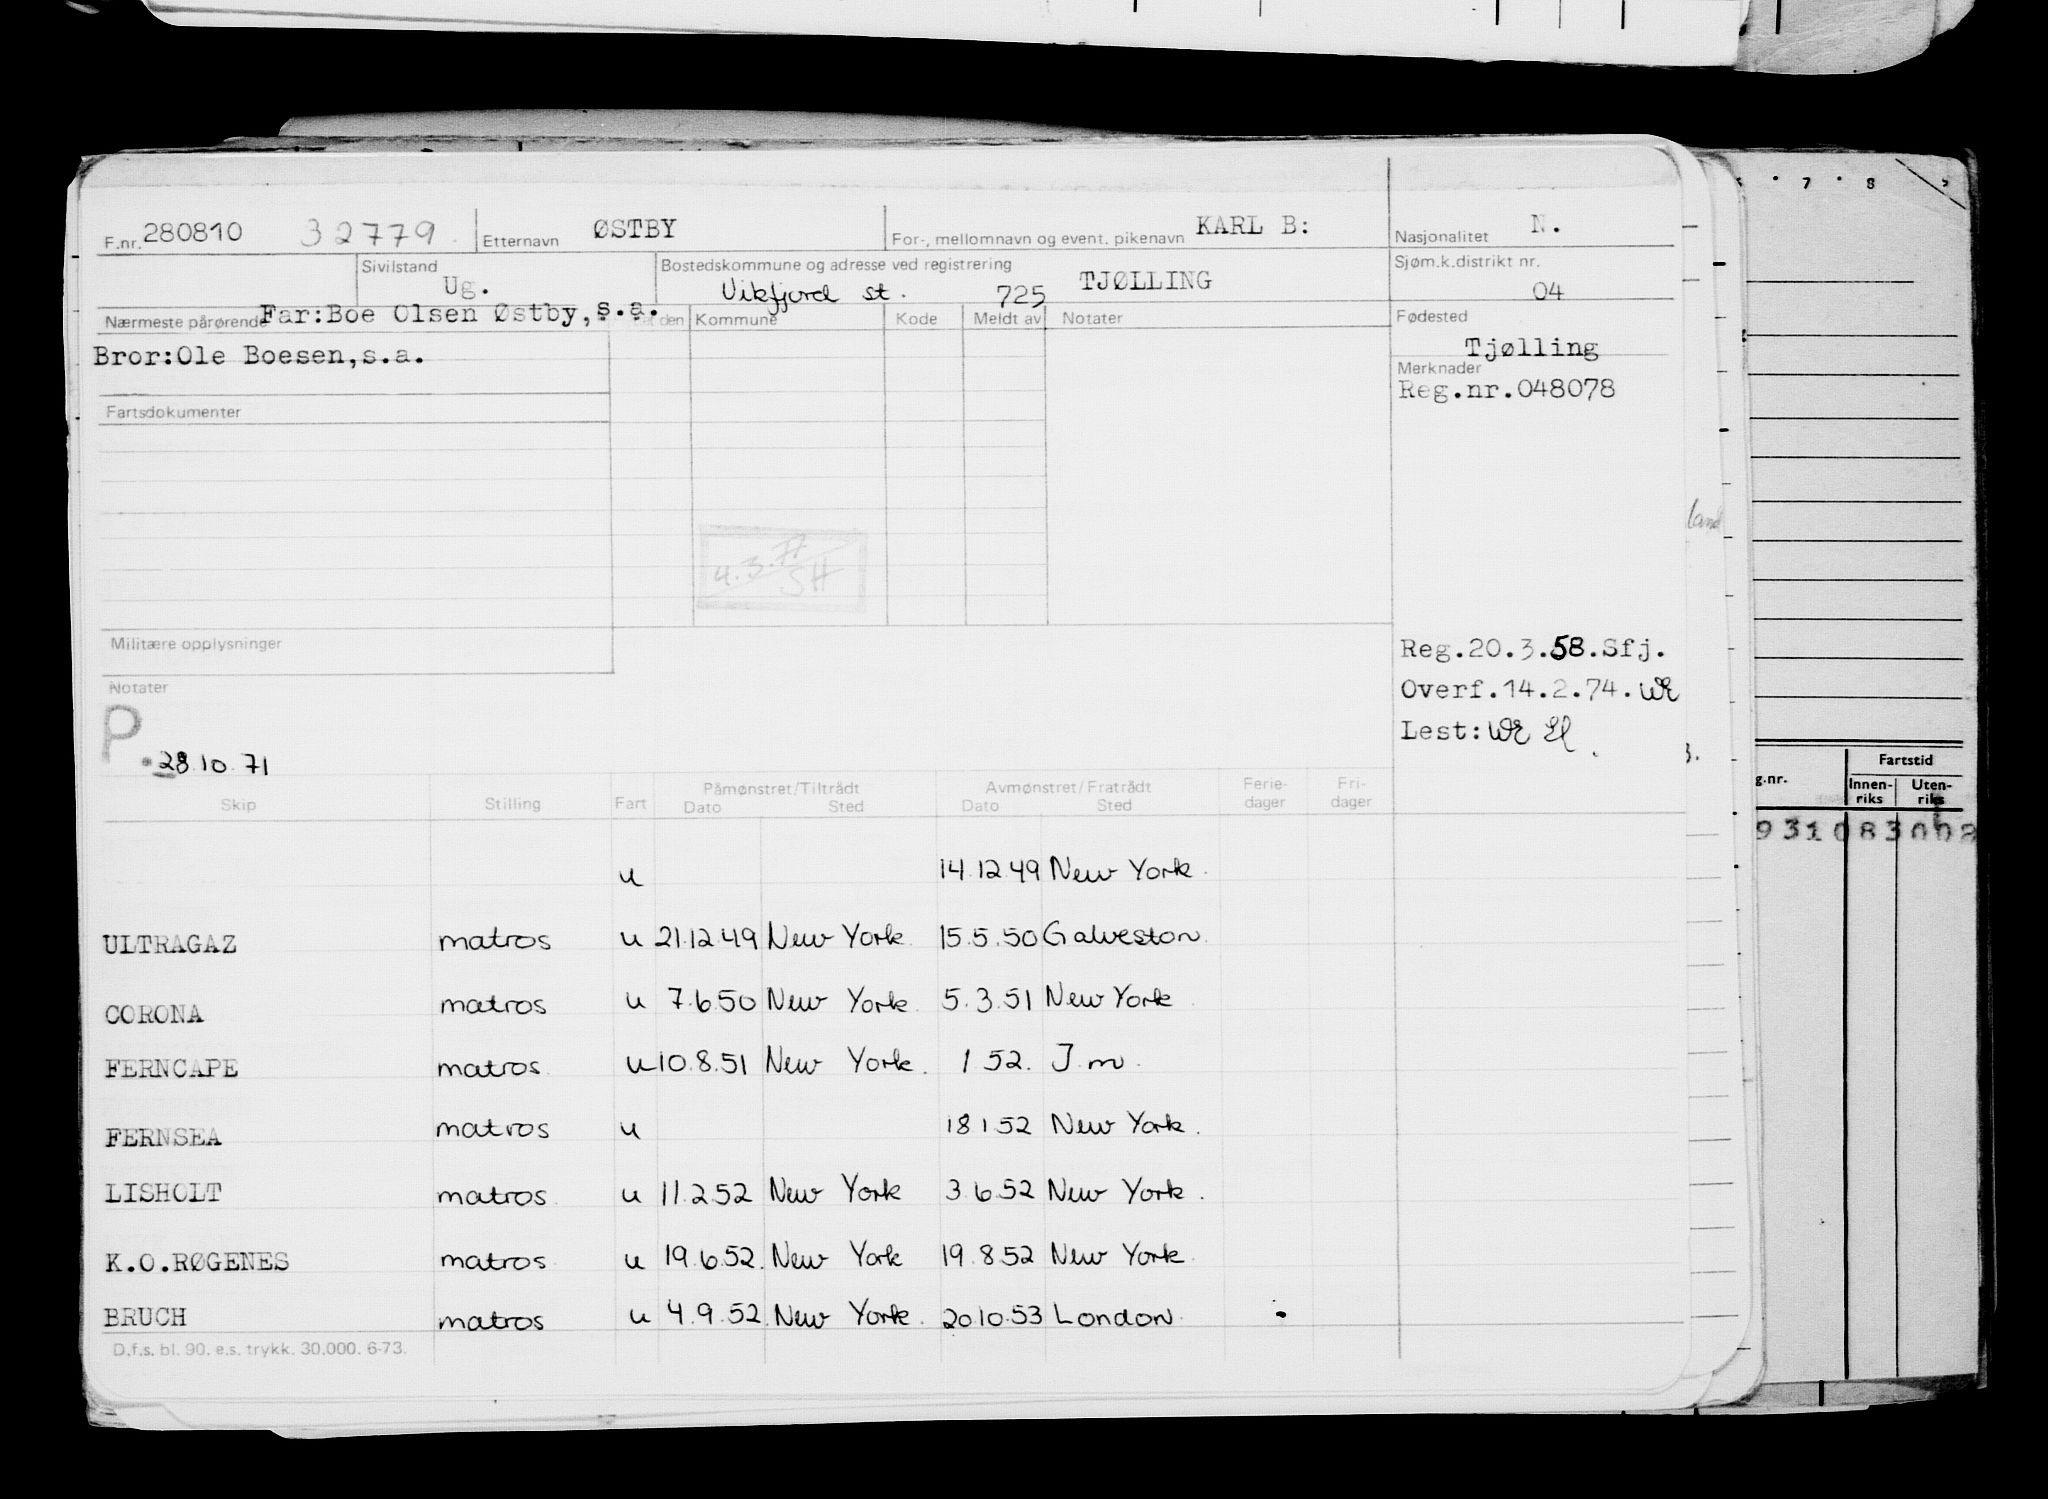 F.nr. 280810 32779. Etternavn ØSTBY For-, mellomnavn og event. pikenavn KARL B: Nasjonalitet N.
Sivilstand Ug. Bostedskommune og adresse ved registrering TJØLLING Sjøm.k.distrikt nr. 04
Vikfjord st. 725
Nærmeste pårørende Far:Boe Olsen Østby,s.a. den Kommune Kode Meldt av Notater Fødested
Bror:Ole Boesen,s.a. Tjølling
Merknader
Reg.nr.048078
Fartsdokumenter
land
4.3.77
SH
Militære opplysninger
Reg.20.3.58.Sfj.
Notater Overf.14.2.74. WE
P Lest: WE
28.10.71
Skip Stilling Fart Påmønstret/Tiltrådt Dato Sted Avmønstret/Fratrådt Dato Sted Ferie-dager Fri-dager
u 14.12.49 New York.
ULTRAGAZ matros u 21.12.49 New York. 15.5.50 Galveston.
CORONA matros u 7.6.50 New York. 5.3.51 New York
FERNCAPE matros. u 10.8.51 New York. 1 52. J.m.
FERNSEA matros u 18 1 52 New York.
LISHOLT matros. u 11.2.52 New York 3.6.52 New York.
K.O.RØGENES matros u 19.6.52. New York 19.8.52 New York.
BRUCH matros u 4.9.52. New York. 20.10.53 London.
D.f.s. bl. 90. e.s. trykk. 30.000. 6-73.
7 8
g.nr. Fartstid
Innen-riks Uten-riks
931083002